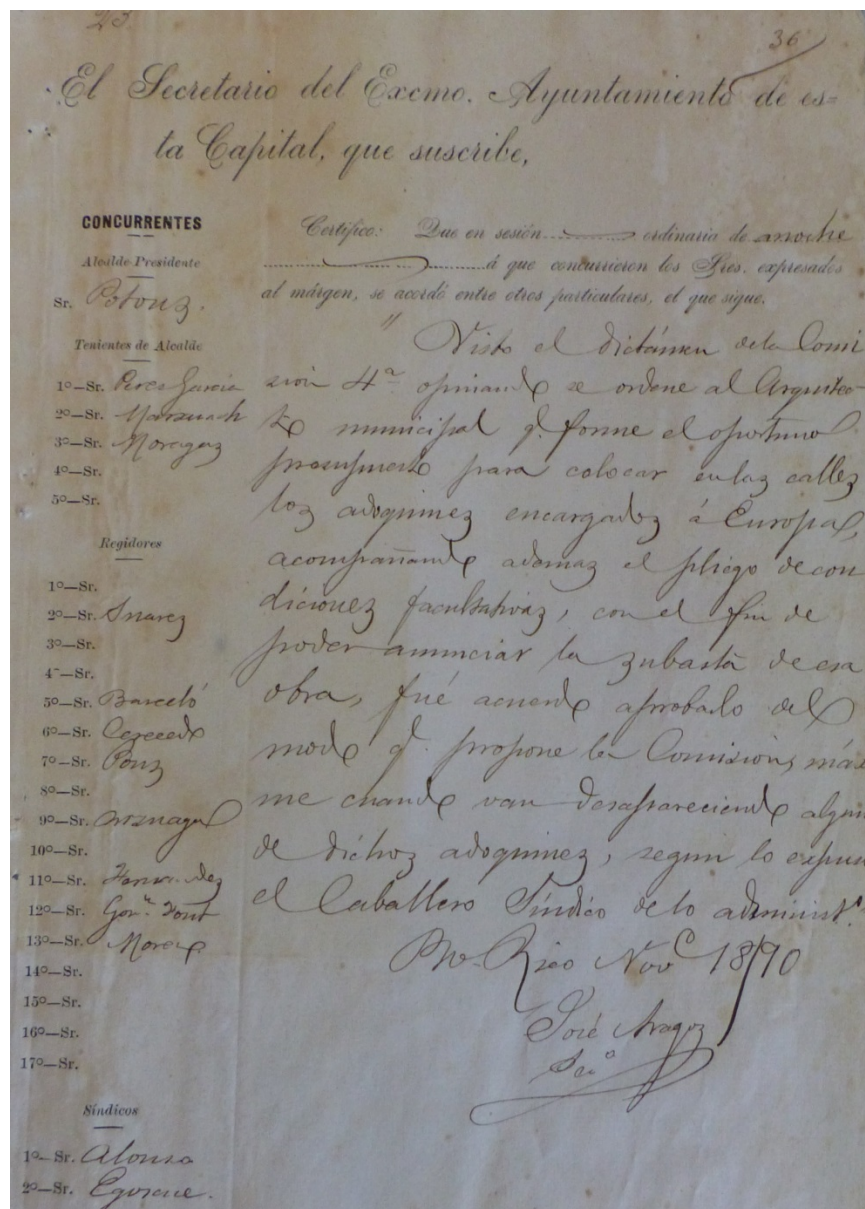 23
36
El Secretario del Excmo. Ayuntamiento de es=
ta Capital, que suscribe,
CONCURRENTES
Alcalde Presidente
Sr. Potous.
Tenientes de Alcalde
1º—Sr. Perez Garcia
2º—Sr. Marxuach
3º—Sr. Moragas
4º—Sr.
5º—Sr.
Regidores
1º—Sr.
2º—Sr. Suarez
3º—Sr.
4º—Sr.
5º—Sr. Barceló
6º—Sr. Cerecedo
7º—Sr. Pons
8º—Sr.
9º—Sr.
10º—Sr.
11º—Sr. Fernandez
12º—Sr. Gonz. Font
13º—Sr.
14º—Sr.
15º—Sr.
16º—Sr.
17º—Sr.
Síndicos
1º—Sr. Alonso
2º—Sr.
Certifico: Que en sesión ordinaria de anoche
á que concurrieron los Sres. expresados
al márgen, se acordó entre otros particulares, el que sigue.
" Visto el dictámen de la Comi
sion 4ª opinando se ordene al Arquitec-
to municipal q. forme el oportuno
presupuesto para colocar en las calles
los adoquines encargados á Europa,
acompañando ademas el pliego de con
diciones facultativas, con el fin de
poder anunciar la subasta de esa
obra, fué acuerdo aprobarlo del
modo q. propone la Comision, máxi
me cuando van desapareciendo algun
de dichos adoquines, segun lo expus
el Caballero Síndico de lo administ.º
Pto-Rico Nov 18/90
José Aragos
Sec.º